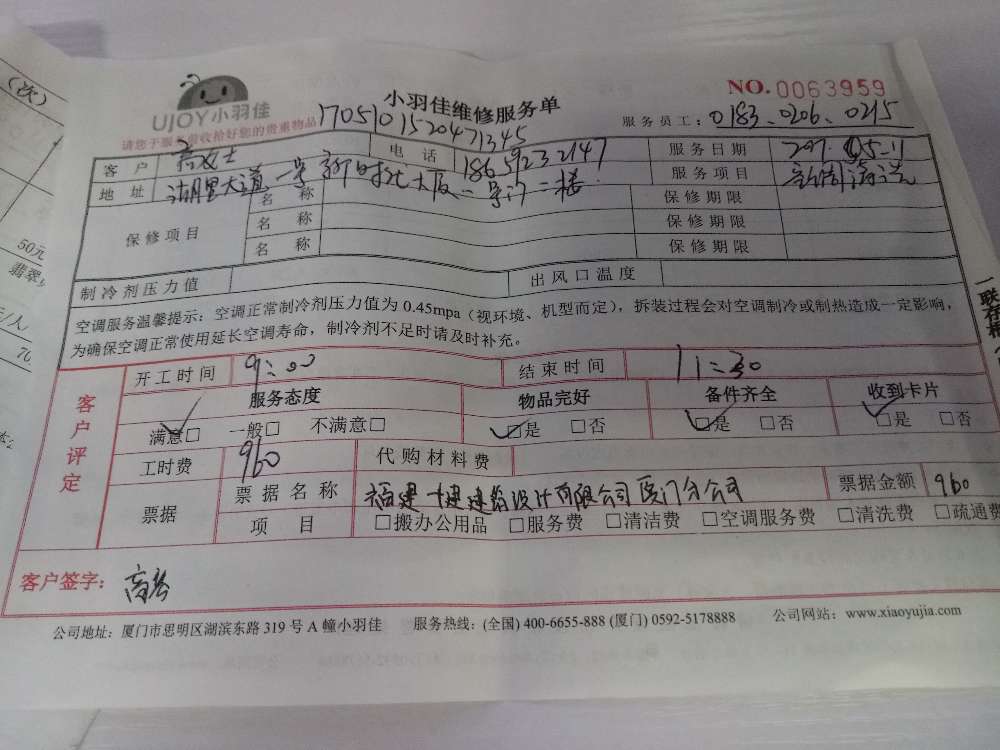 (次)
50元
翡翠
元/人
UJOY小羽佳
小羽佳维修服务单
NO.0063959
请您于服务前收拾好您的贵重物品
1705101520471345
服务员工：0183、0206、0215
客户 女士 电话 18659232147 服务日期 5-11
地址 湖里大道一号 二楼 服务项目 清洗
保修项目 名称 保修期限
名称 保修期限
名称 保修期限
制冷剂压力值 出风口温度
空调服务温馨提示：空调正常制冷剂压力值为0.45mpa（视环境、机型而定），拆装过程会对空调制冷或制热造成一定影响，
为确保空调正常使用延长空调寿命，制冷剂不足时请及时补充。
一联存根
客户评定
开工时间 9:00 结束时间 11:30
服务态度 物品完好 备件齐全 收到卡片
满意□ 一般□ 不满意□ □是 □否 □是 □否 □是 □否
工时费 960 代购材料费
票据 票据名称 福建十建建筑设计有限公司厦门分公司 票据金额 960
项目 □搬办公用品 □服务费 □清洁费 □空调服务费 □清洗费 □疏通费
客户签字：
公司地址：厦门市思明区湖滨东路319号A幢小羽佳 服务热线：(全国) 400-6655-888 (厦门) 0592-5178888 公司网站：www.xiaoyujia.com